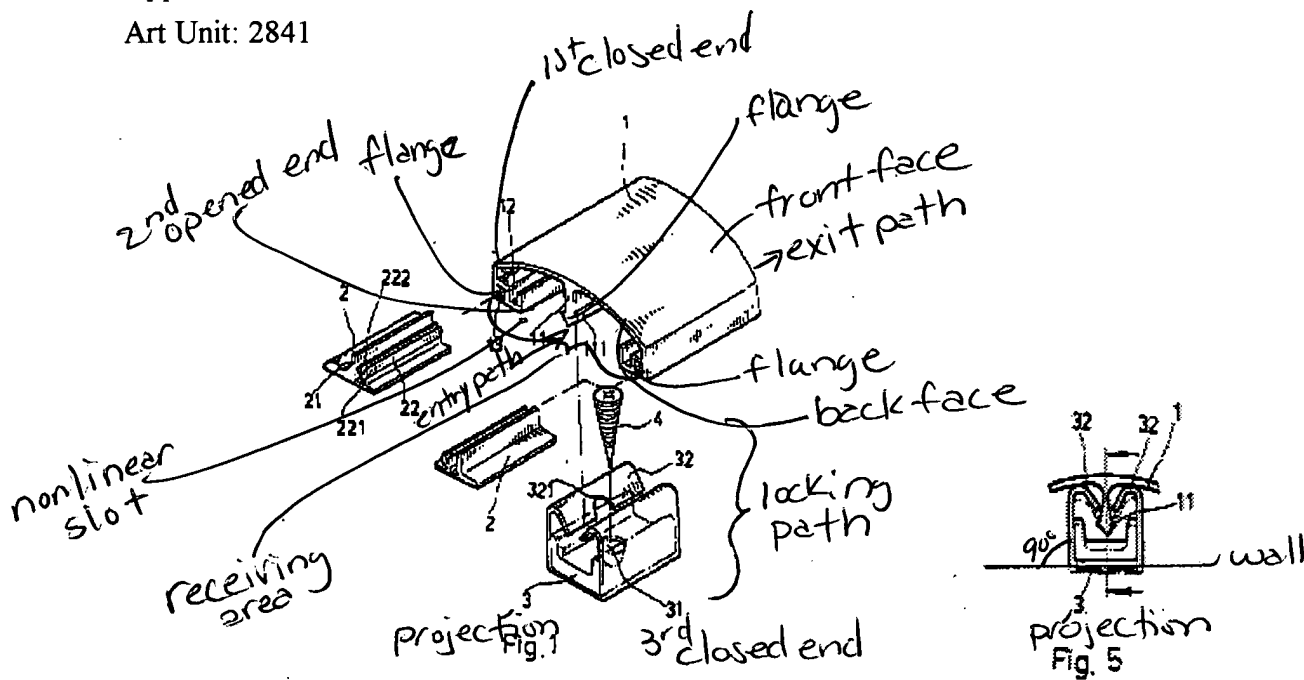 Art Unit: 2841
1st closed end
flange
1
2nd opened end
flange
front face
exit path
12
222
2
21
221
22
entry path
11
flange
back face
4
nonlinear slot
receiving area
2
32
321
locking path
3
31
projection
Fig. 1
3rd closed end
32
32
1
11
90°
wall
3
projection
Fig. 5